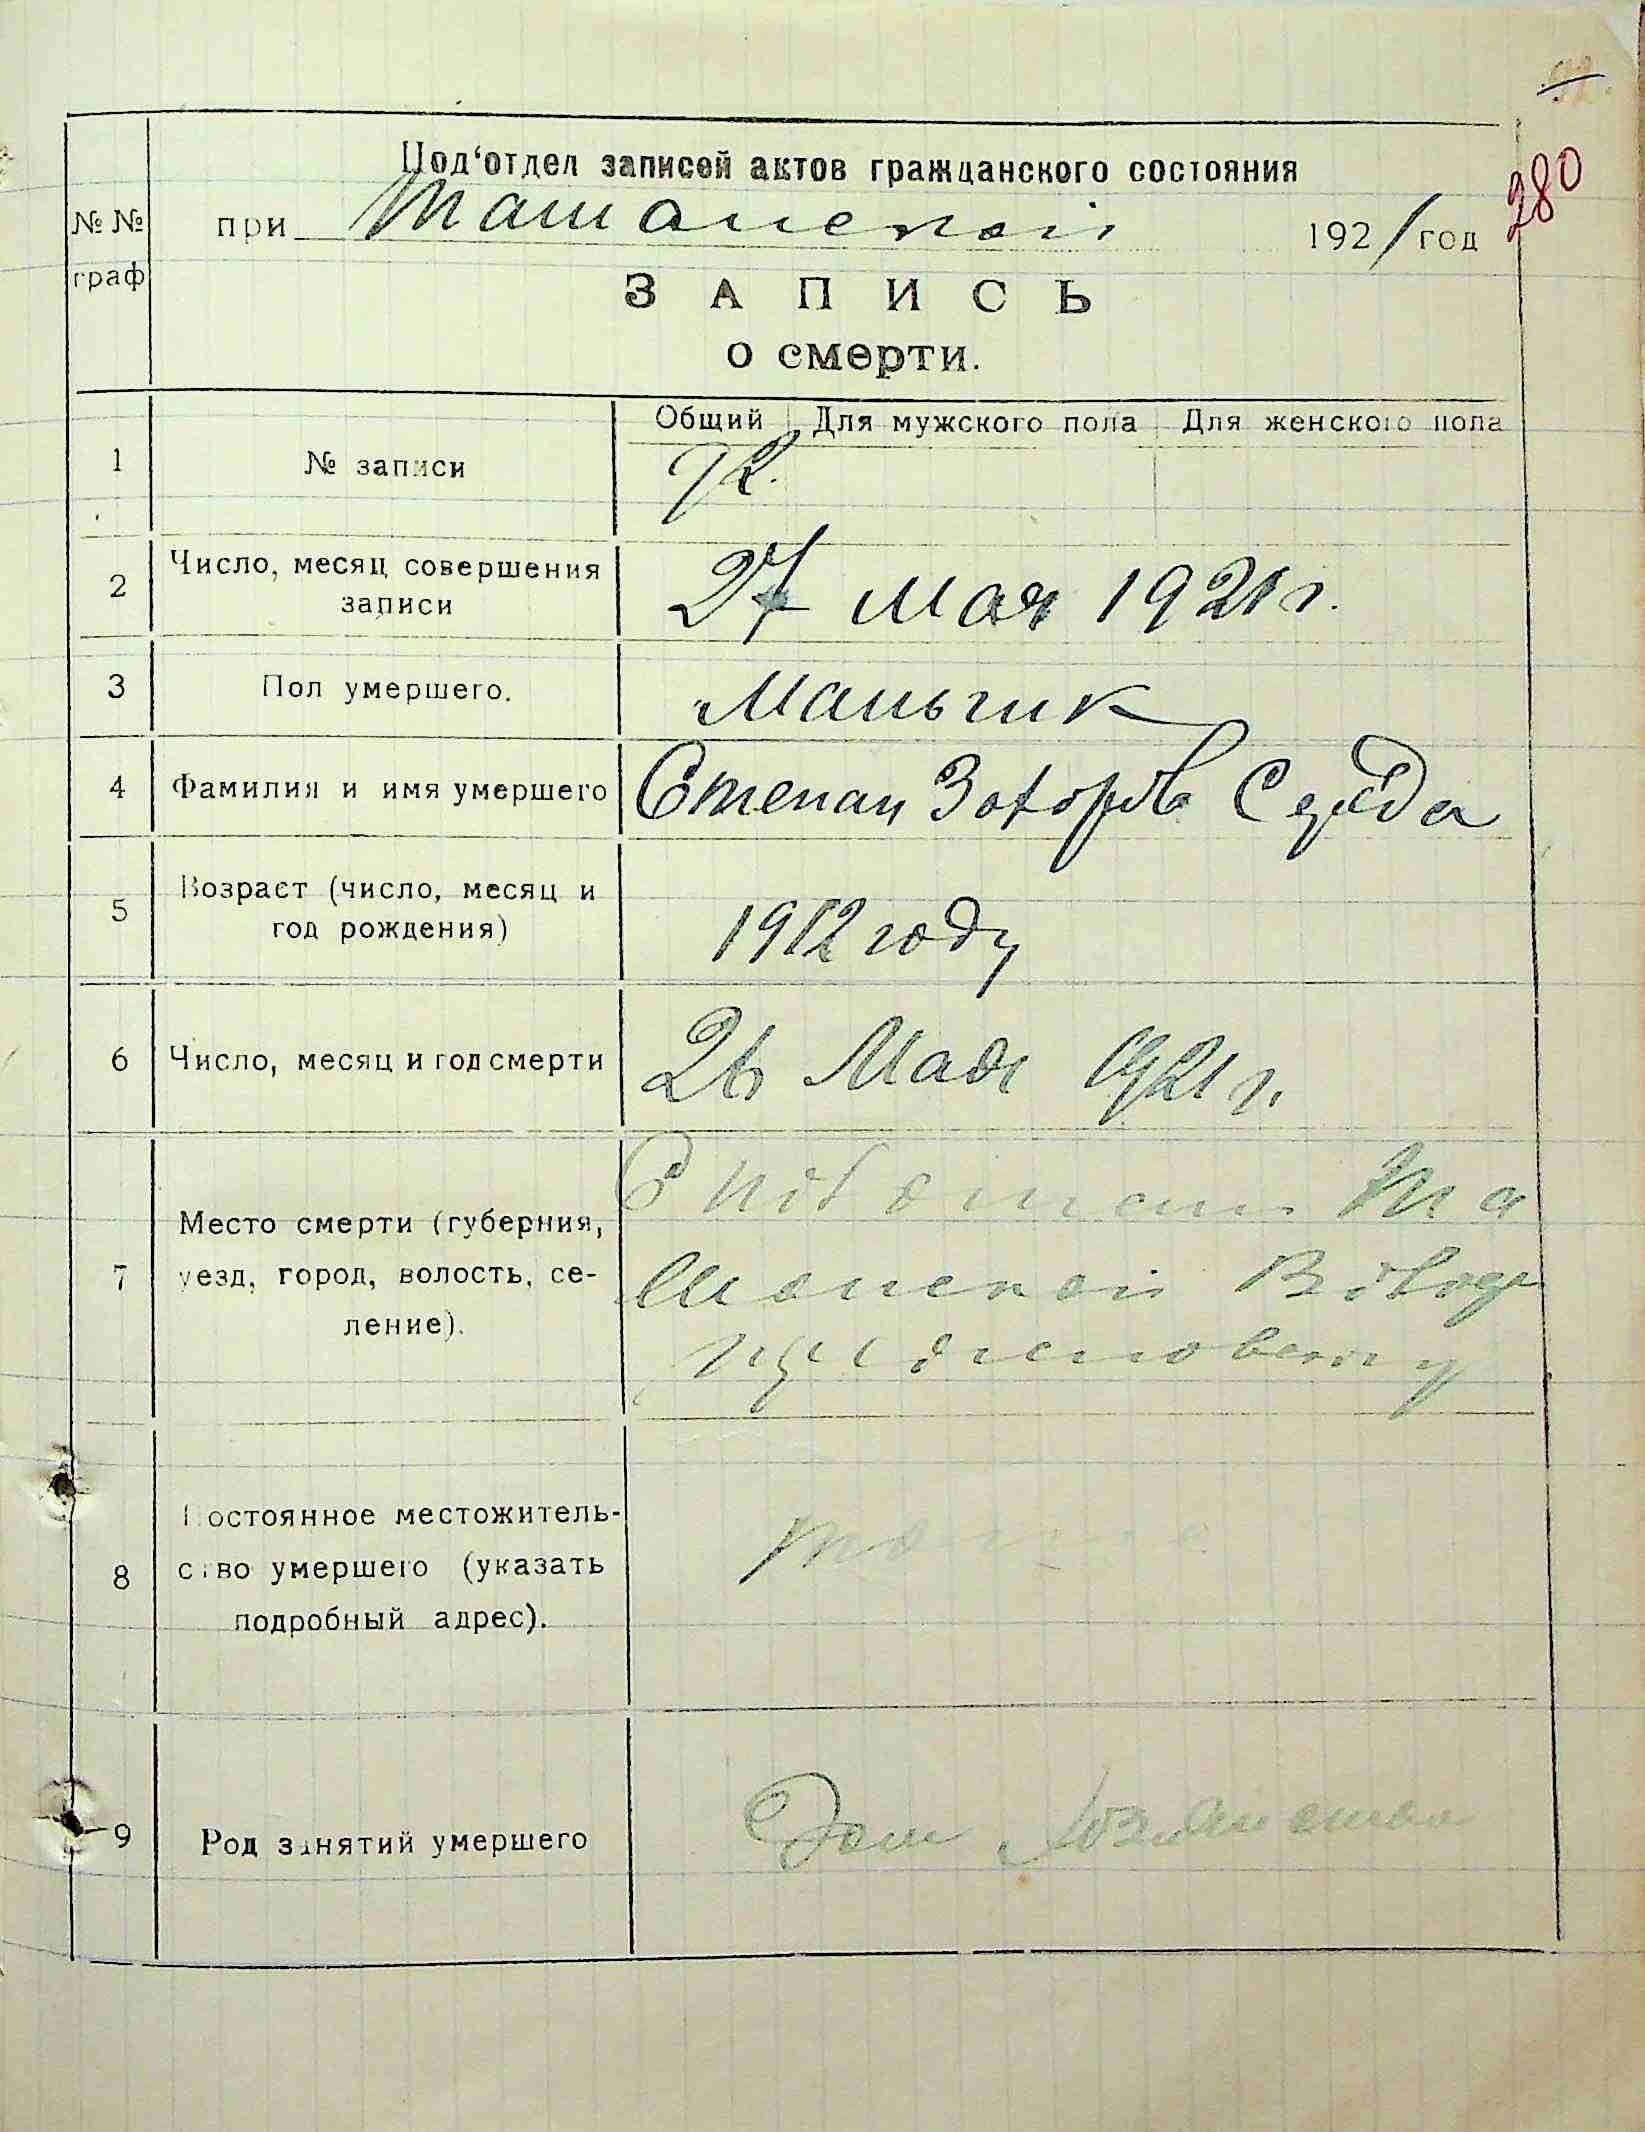 280
Под‘отдел записей актов гражданского состояния
№ №
граф
при Ташанской 1921 год
ЗАПИСЬ
о смерти.
Общий Для мужского пола Для женского пола
1 № записи
2 Число, месяц совершения
записи
27 мая 1921 г.
3 Пол умершего.
Мальчик
4 Фамилия и имя умершего
Степан Захоров Середа
5 Возраст (число, месяц и
год рождения)
1912 году
6 Число, месяц и год смерти
26 Мая 1921 г.
7 Место смерти (губерния,
уезд, город, волость, се-
ление).
Та
шанской
8 Постоянное местожитель-
ство умершего (указать
подробный адрес).
9 Род занятий умершего
Дом Хозяйство